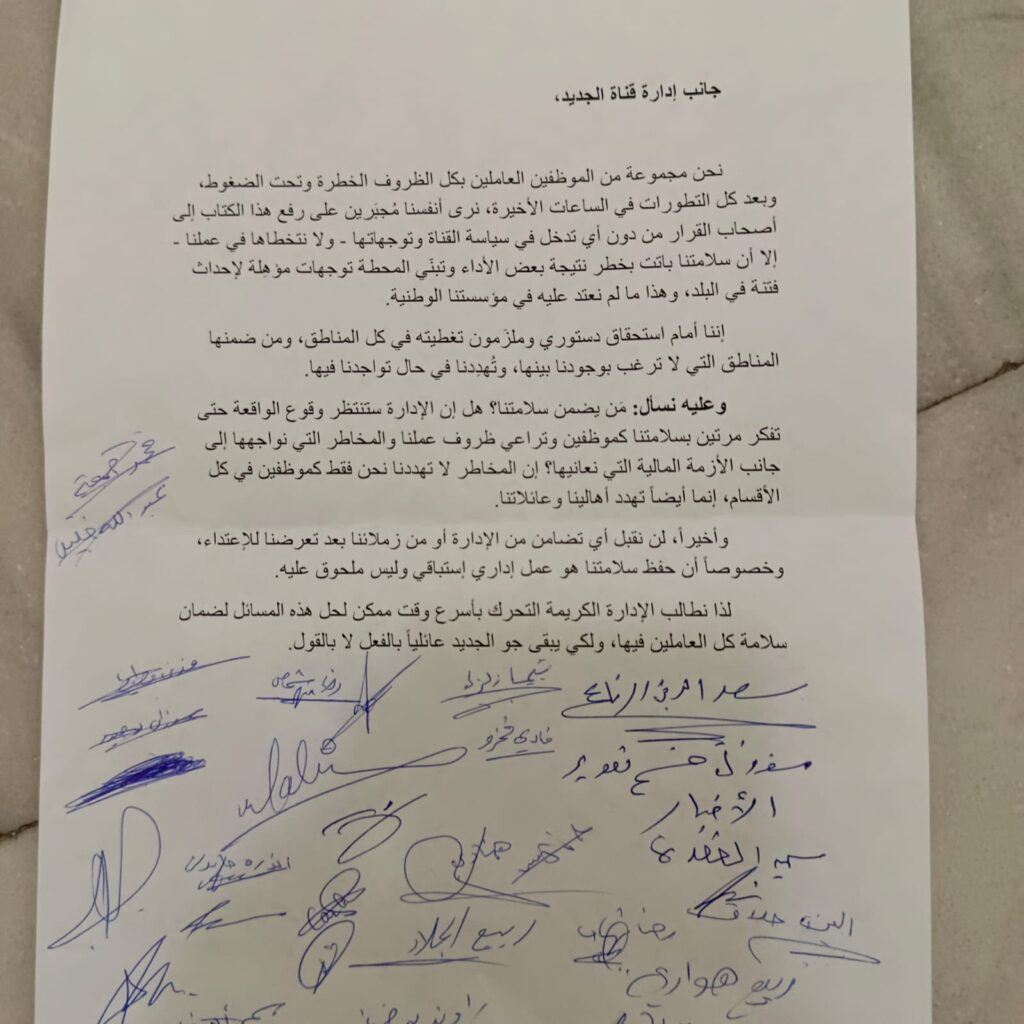 جانب إدارة قناة الجديد،
نحن مجموعة من الموظفين العاملين بكل الظروف الخطرة وتحت الضغوط،
وبعد كل التطورات في الساعات الأخيرة، نرى أنفسنا مُجبَرين على رفع هذا الكتاب إلى
أصحاب القرار من دون أي تدخل في سياسة القناة وتوجهاتها - ولا نتخطاها في عملنا -
إلا أن سلامتنا باتت بخطر نتيجة بعض الأداء وتبنّي المحطة توجهات مؤهِلة لإحداث
فتنة في البلد، وهذا ما لم نعتد عليه في مؤسستنا الوطنية.
إننا أمام استحقاق دستوري وملزَمون تغطيته في كل المناطق، ومن ضمنها
المناطق التي لا ترغب بوجودنا بينها، وتُهدِدنا في حال تواجدنا فيها.
وعليه نسأل: مَن يضمن سلامتنا؟ هل إن الإدارة ستنتظر وقوع الواقعة حتى
تفكر مرتين بسلامتنا كموظفين وتراعي ظروف عملنا والمخاطر التي نواجهها إلى
جانب الأزمة المالية التي نعانيها؟ إن المخاطر لا تهددنا نحن فقط كموظفين في كل
الأقسام، إنما أيضاً تهدد أهالينا وعائلاتنا.
وأخيراً، لن نقبل أي تضامن من الإدارة أو من زملائنا بعد تعرضنا للإعتداء،
وخصوصاً أن حفظ سلامتنا هو عمل إداري إستباقي وليس ملحوق عليه.
لذا نطالب الإدارة الكريمة التحرك بأسرع وقت ممكن لحل هذه المسائل لضمان
سلامة كل العاملين فيها، ولكي يبقى جو الجديد عائلياً بالفعل لا بالقول.
عبد الله خليل
الأخبار
ربيع
ربيع هواري